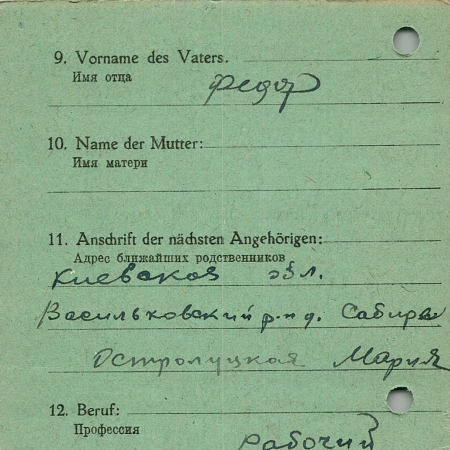 9. Vorname des Vaters.
Имя отца
Федор
10. Name der Mutter:
Имя матери
11. Anschrift der nächsten Angehörigen:
Адрес ближайших родственников
Киевская обл.
Васильковский р-н д. Сабиры
Остролуцкая Мария
12. Beruf:
Профессия
рабочий